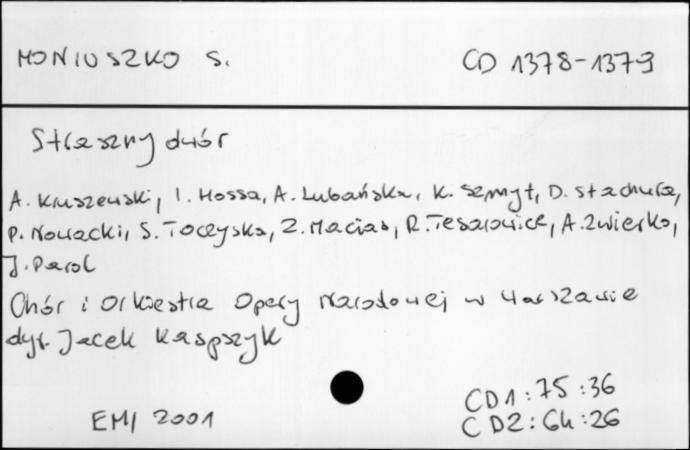 MONIUSZKO S. CD 1378-1379
Straszny dwór
A. Kruszewski, I. Hossa, A. Lubańska, K. Szmyt, D. Stachura,
P. Nowacki, S. Toczyska, Z. Macias, R. Tesarowicz, A. Zwierko,
J. Parol
Chór i Orkiestra Opery Narodowej w Warszawie
dyr. Jacek Kaspszyk
EMI 2001
CD1:75:36
CD2:64:26